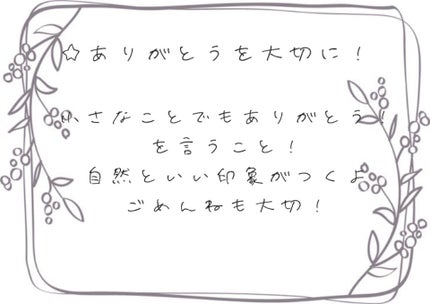 ☆ありがとうを大切に！
小さなことでもありがとう！
を言うこと！
自然といい印象がつくよ
ごめんねも大切！